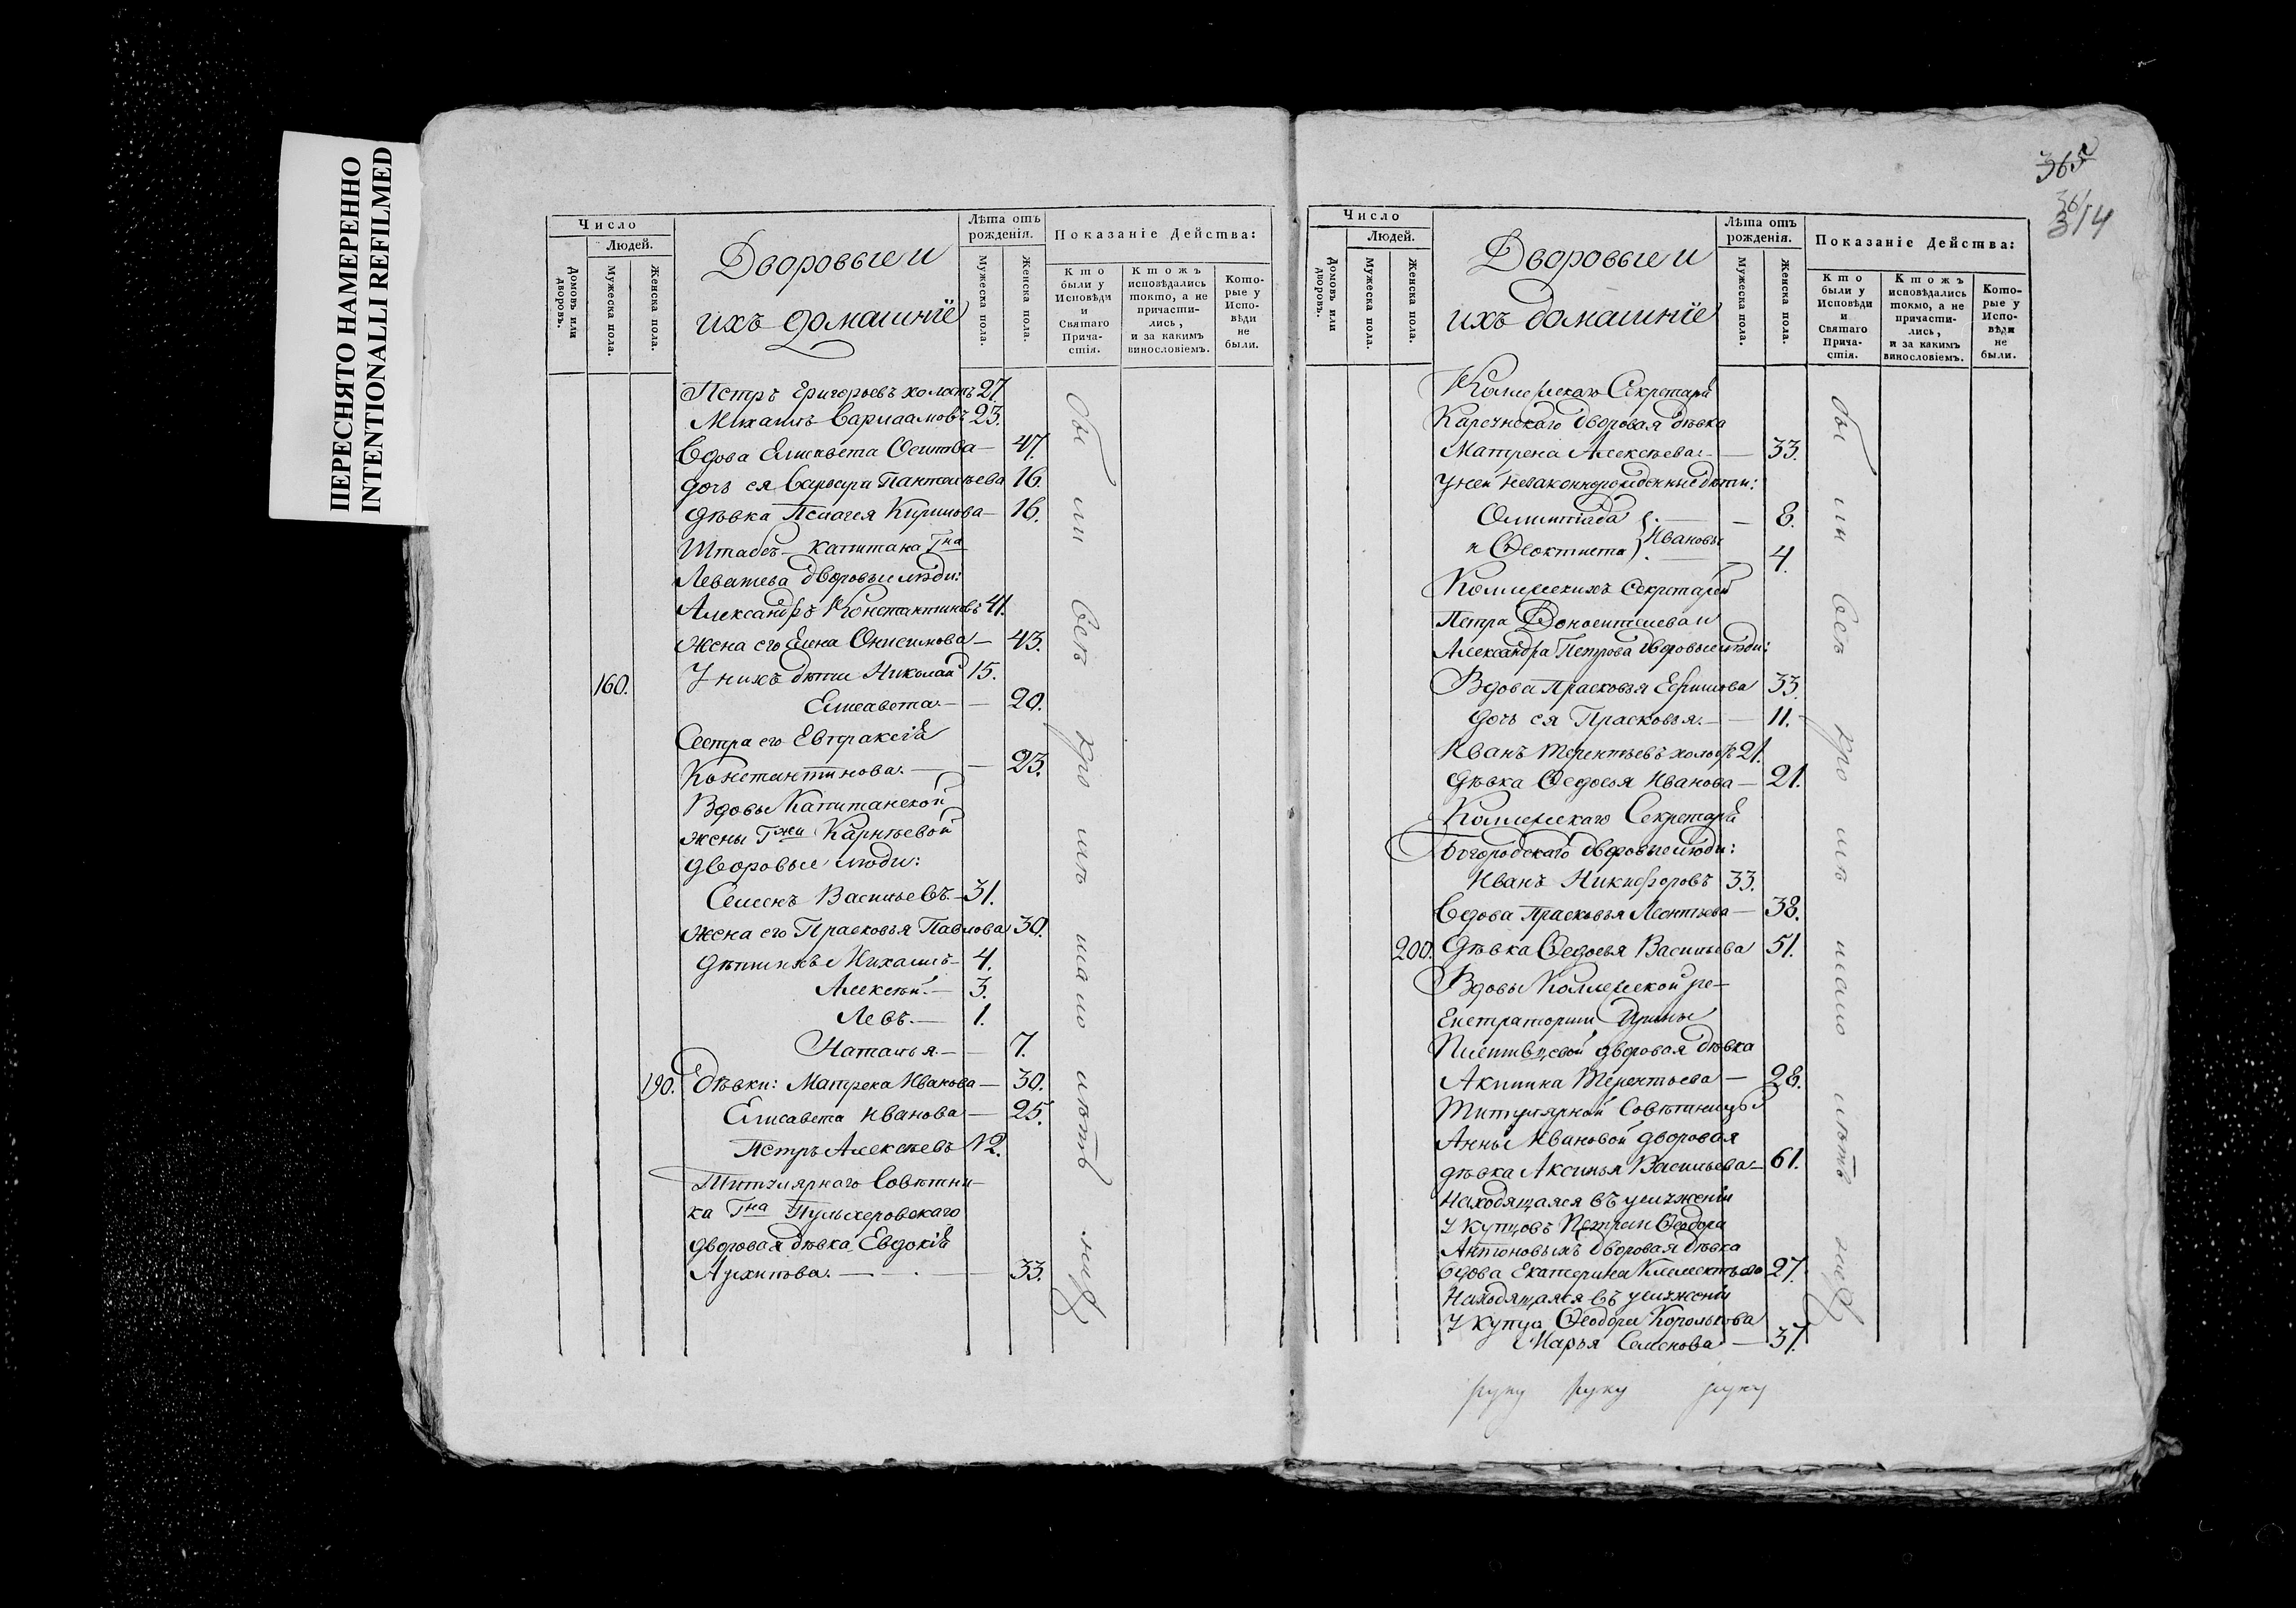 ПЕРЕСНЯТО НАМЕРЕННО
INTENTIONALLI REFILMED
Число
Людей.
Домовъ или дворовъ.
Мужеска пола.
Женска пола.
Дворовые и
ихъ домашніе
Лѣта отъ рожденія.
Мужеска пола.
Женска пола.
Показаніе Действа:
Кто были у Исповѣди и Святаго Причастія.
Ктожъ исповѣдались токмо, а не причастились, и за какимъ винословіемъ.
Которые у Исповѣди не были.
Петръ Григорьевъ холостъ 27.
Михаилъ Варлаамовъ 23.
Вдова Елисавета Осипова — 47.
дочь ея Варвара Пантелѣева 16.
дѣвка Пелагея Кирилова — 16.
Штабсъ-капитана Гна
Левашева дворовые люди:
Александръ Константиновъ 41.
Жена его Елена Онисимова — 43.
160. У нихъ дѣти Николай 15.
Елисавета. — 20.
Сестра его Евпраксія
Константинова. — 23.
Вдовы Капитанской
жены Гжи Карнѣевой
дворовые люди:
Семенъ Васильевъ. — 31.
Жена его Прасковья Павлова 30.
дѣти ихъ Михаилъ — 4.
Алексѣй. — 3.
Левъ. — 1.
Наталья. — 7.
190. Дѣвки: Матрена Иванова — 30.
Елисавета Иванова — 25.
Петръ Алексѣевъ 12.
Титулярнаго Совѣтни-
ка Гна Пульхеровскаго
дворовая дѣвка Евдокія
Архипова. — 33.
бы ли всѣ кро мѣ ма ло лѣтъ нихъ
365
361
314
Число
Людей.
Домовъ или дворовъ.
Мужеска пола.
Женска пола.
Дворовые и
ихъ домашніе
Лѣта отъ рожденія.
Мужеска пола.
Женска пола.
Показаніе Действа:
Кто были у Исповѣди и Святаго Причастія.
Ктожъ исповѣдались токмо, а не причастились, и за какимъ винословіемъ.
Которые у Исповѣди не были.
Колежскаго Секретаря
дворовая дѣвка
Матрена Алексѣева. — 33.
У ней незаконнорожденные дѣти:
Олимпіада — 8.
и Феоктиста } Ивановы 4.
Колежскихъ Секретарей
Петра и
Александра Петрова дворовые люди:
Вдова Прасковья Ефимова 33.
дочь ея Прасковья. — 11.
Иванъ Терентьевъ холостъ 21.
дѣвка Федосья Иванова — 21.
Колежскаго Секретаря
Богородскаго дворовые люди:
Иванъ Никифоровъ 33.
Вдова Прасковья Леонтьева — 38.
200. Дѣвка Федосья Васильева 51.
Вдовы Колежской ре-
гистраторши Ирины
дворовая дѣвка
Акилина Терентьева — 28.
Титулярной Совѣтницы
Анны Ивановой дворовая
дѣвка Аксинья Васильева — 61.
Находящаяся въ услуженіи
у купцовъ Петра и Феодора
Антоновыхъ дворовая дѣвка
вдова Екатерина Климентьева 27.
Находящаяся въ услуженіи
у купца Феодора Королькова
Марья Семенова — 37.
бы ли всѣ кро мѣ мало лѣтъ нихъ
руку руку руку